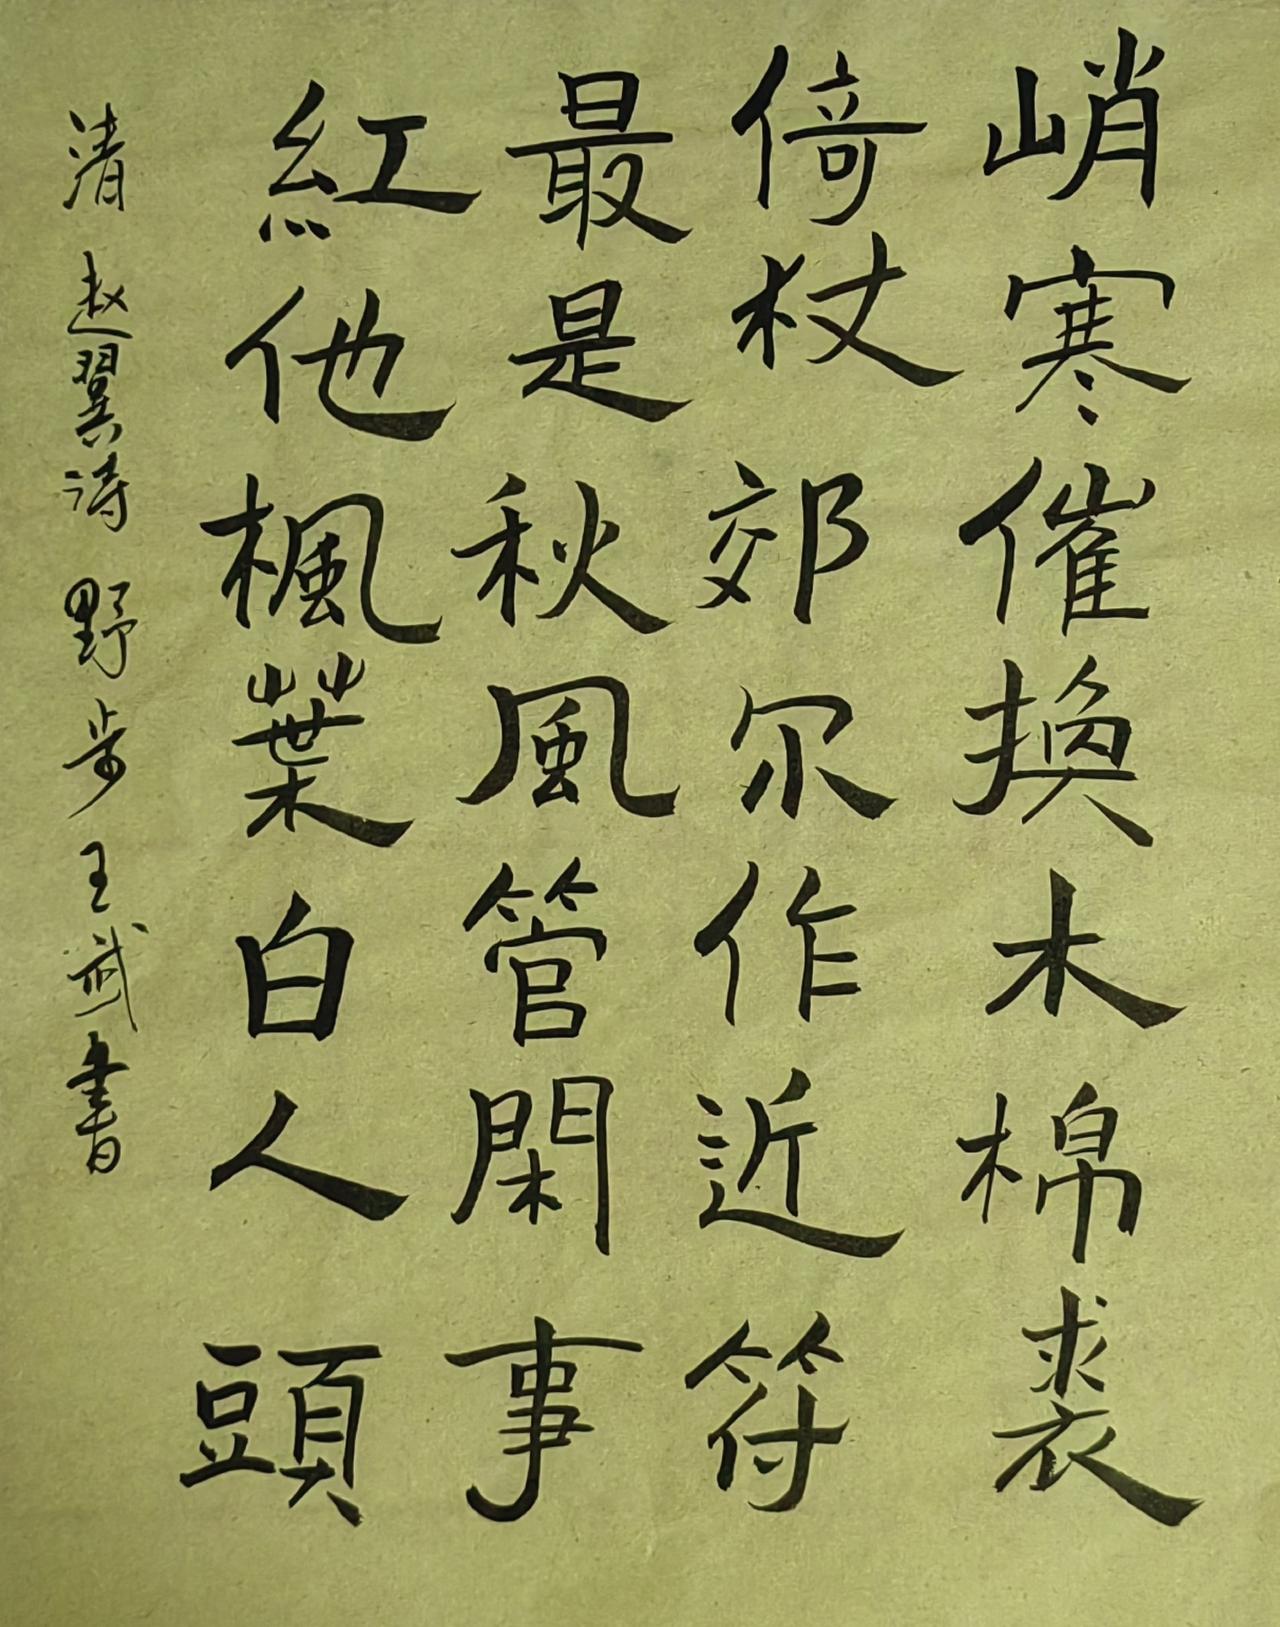 峭寒催換木棉裘
倚杖郊尔作近符
最是秋風管閑事
紅他楓葉白人頭
清 赵翼诗 野步 王斌書